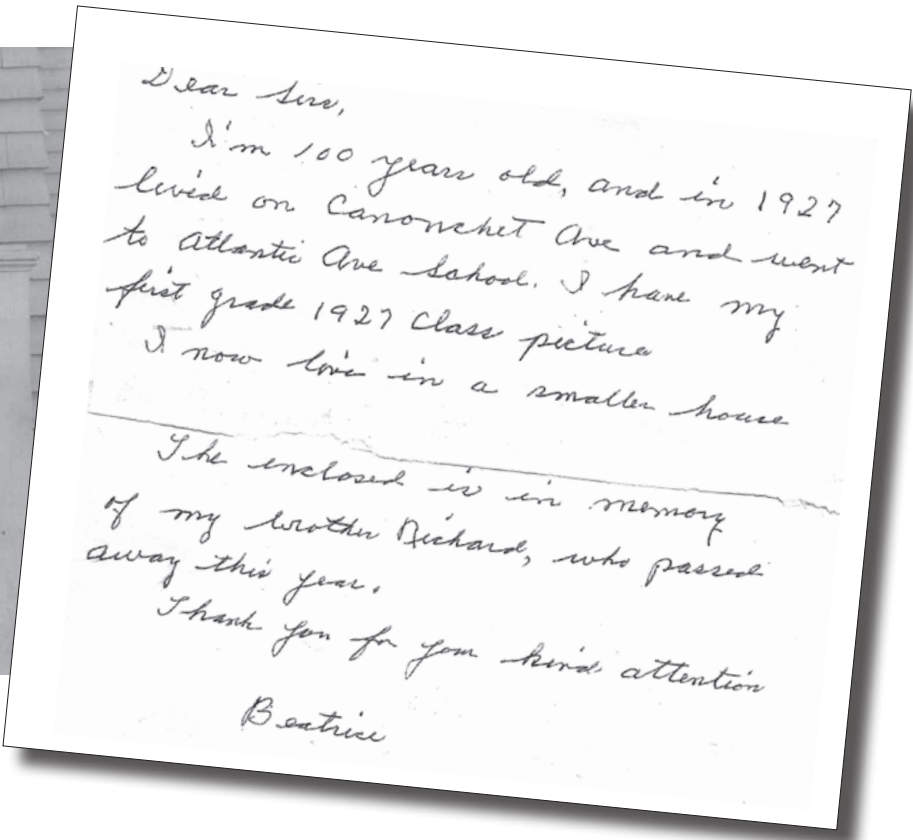 Dear Sirs,
I'm 100 years old, and in 1927
lived on Canonchet Ave and went
to Atlantic Ave School. I have my
first grade 1927 Class picture
I now live in a smaller house
The enclosed is in memory
of my brother Richard, who passed
away this year.
Thank you for your kind attention
Beatrice